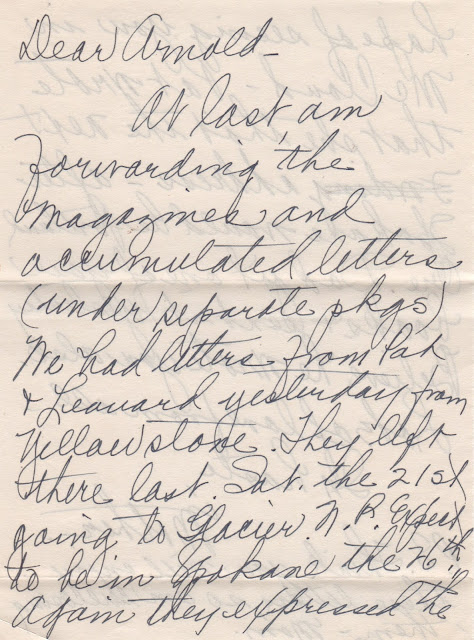 Dear Arnold -
At last, am
forwarding the
magazines and
accumulated letters
(under separate pkgs)
We had letters from Pat
& Leonard yesterday from
Yellowstone. They left
there last. Sat. the 21st
going to Glacier N. P. Expect
to be in Spokane the 26th.
Again they expressed the